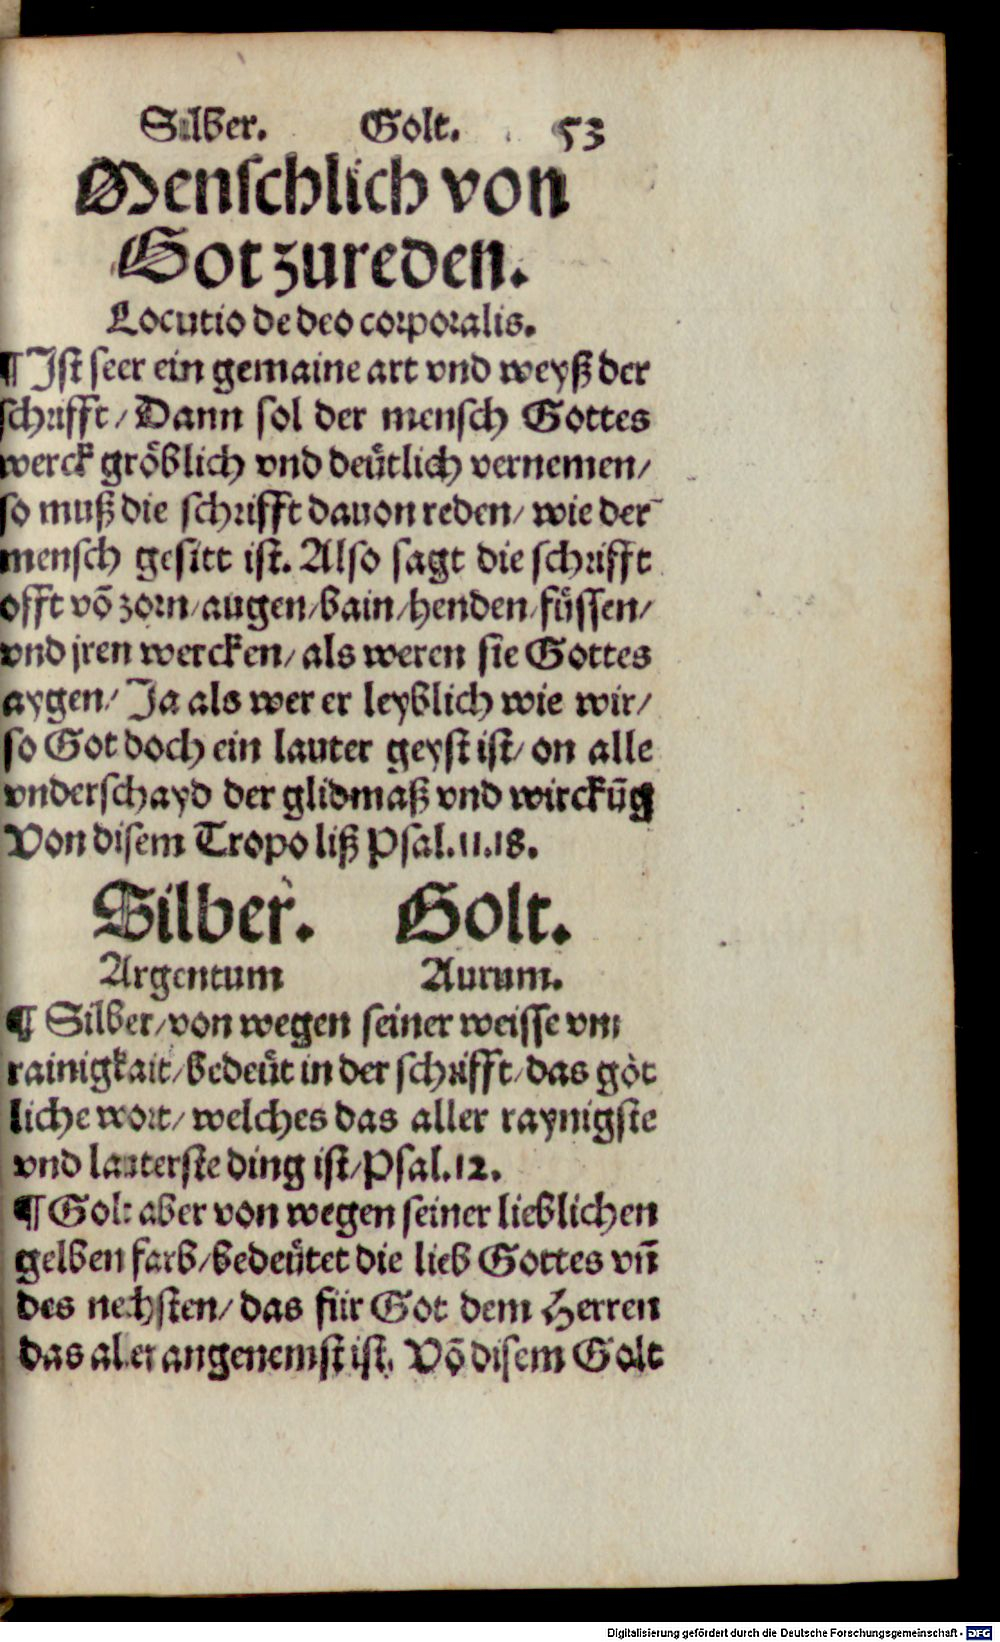 Silber. Golt. 53
Menschlich von
Got zureden.
Locutio de deo corporalis.
¶ Ist seer ein gemaine art vnd weyß der
schrifft / Dann sol der mensch Gottes
werck gröblich vnd deütlich vernemen /
so muß die schrifft dauon reden / wie der
mensch gesitt ist. Also sagt die schrifft
offt võ zorn / augen / bain / henden / füssen /
vnd jren wercken / als weren sie Gottes
aygen / Ja als wer er leyblich wie wir /
so Got doch ein lauter geyst ist / on alle
vnderschayd der glidmaß vnd wirckũg
Von disem Tropo liß Psal.11.18.
Silber. Golt.
Argentum Aurum.
¶ Silber / von wegen seiner weisse vnd
rainigkait / bedeüt in der schrifft / das göt
liche wort / welches das aller raynigste
vnd lauterste ding ist / Psal.12.
¶ Golt aber von wegen seiner lieblichen
gelben farb / bedeütet die lieb Gottes vñ
des nechsten / das für Got dem Herren
das aller angenemst ist. Võ disem Golt
Digitalisierung gefördert durch die Deutsche Forschungsgemeinschaft - DFG